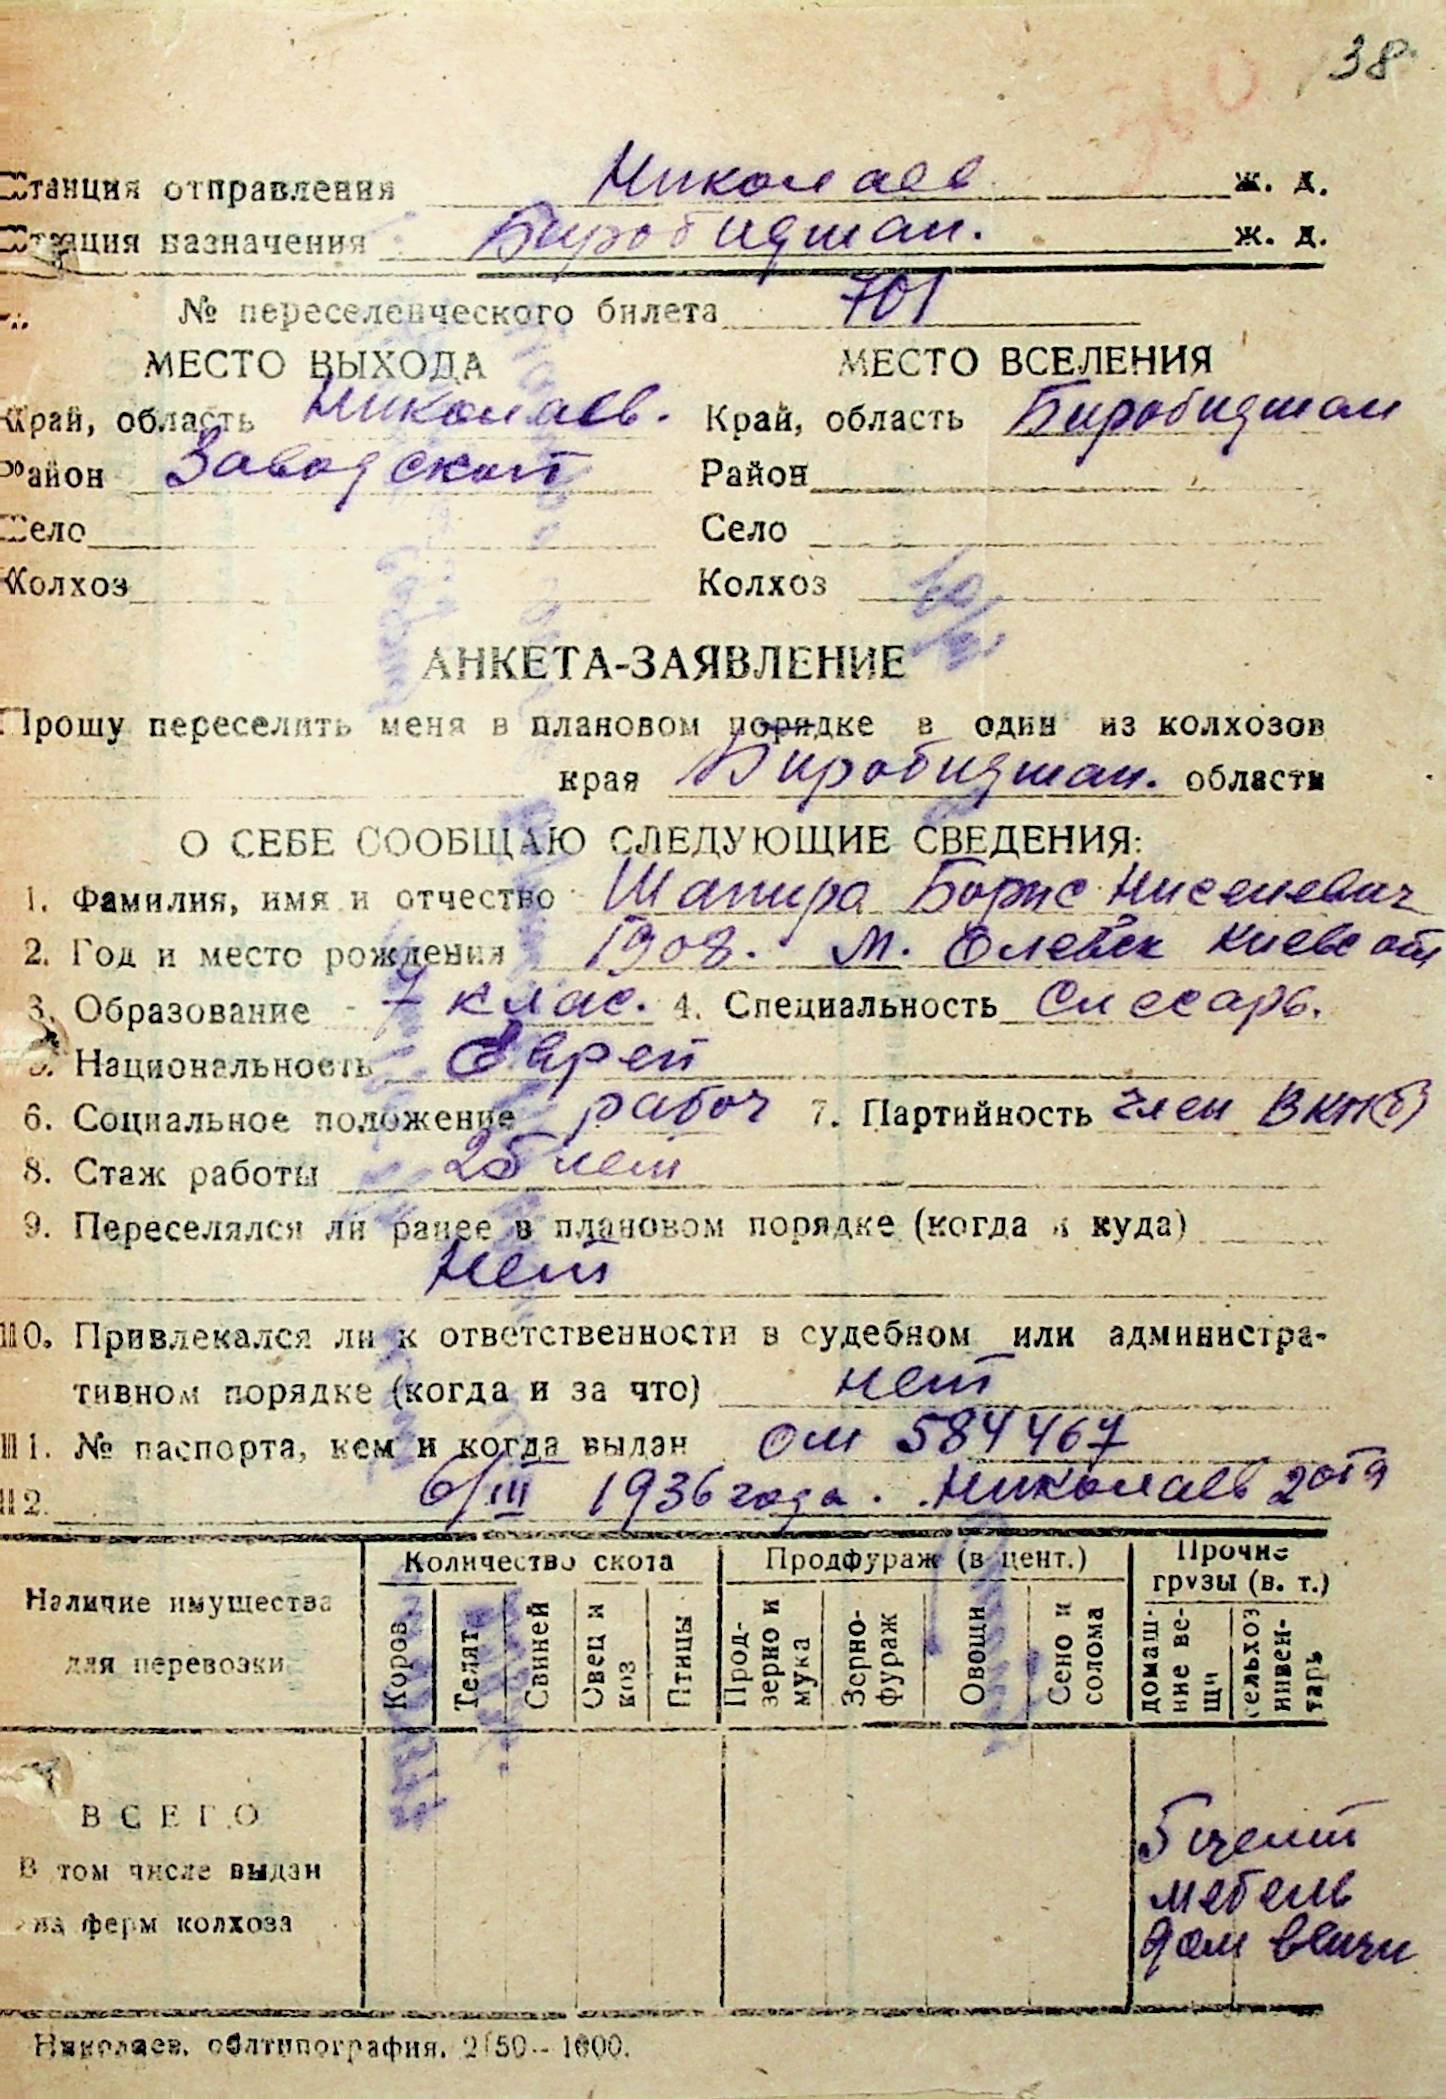 38
Станция отправления Николаев ж. д.
Станция назначения Биробиджан. ж. д.
№ переселенческого билета 701
МЕСТО ВЫХОДА МЕСТО ВСЕЛЕНИЯ
Край, область Николаев. Край, область Биробиджан
Район Заводской Район
Село Село
Колхоз Колхоз
АНКЕТА-ЗАЯВЛЕНИЕ
Прошу переселить меня в плановом порядке в один из колхозов
края Биробиджан. области
О СЕБЕ СООБЩАЮ СЛЕДУЮЩИЕ СВЕДЕНИЯ:
1. Фамилия, имя и отчество Шапиро Борис Ниселевич
2. Год и место рождения 1908. м. Олевск Киевс обл
3. Образование 7 клас. 4. Специальность Слесарь.
5. Национальность Еврей
6. Социальное положение рабоч 7. Партийность член ВКП(б)
8. Стаж работы 25 лет
9. Переселялся ли ранее в плановом порядке (когда и куда)
Нет
10. Привлекался ли к ответственности в судебном или администра-
тивном порядке (когда и за что) нет
11. № паспорта, кем и когда выдан 584467
12. 6/III 1936 года. Николаев
Наличие имущества для перевозки
Количество скота Продфураж (в цент.) Прочие грузы (в. т.)
Коров Телят Свиней Овец и коз Птицы Прод-зерно и мука Зерно-фураж Овощи Сено и солома домаш-ние ве-щи сельхоз инвен-тарь
ВСЕГО 5 цент
В том числе выдан мебель
на ферм колхоза дом вещи
Николаев, облтипография. 2150--1000.